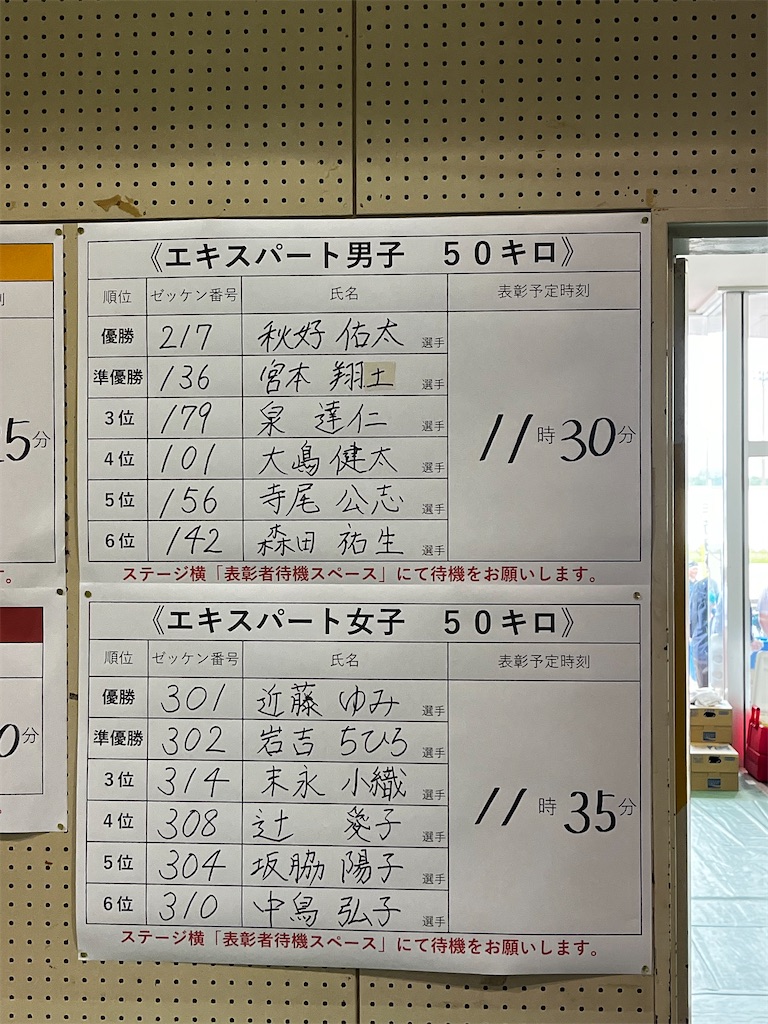 《エキスパート男子 50キロ》
順位 ゼッケン番号 氏名 表彰予定時刻
優勝 217 秋好 佑太 選手
準優勝 136 宮本 翔土 選手
3位 179 泉 達仁 選手
4位 101 大嶋 健太 選手
5位 156 寺尾 公志 選手
6位 142 森田 祐生 選手
11時30分
ステージ横「表彰者待機スペース」にて待機をお願いします。
《エキスパート女子 50キロ》
順位 ゼッケン番号 氏名 表彰予定時刻
優勝 301 近藤 ゆみ 選手
準優勝 302 岩吉 ちひろ 選手
3位 314 末永 小織 選手
4位 308 辻 愛子 選手
5位 304 坂脇 陽子 選手
6位 310 中島 弘子 選手
11時35分
ステージ横「表彰者待機スペース」にて待機をお願いします。
5分
す。
0分